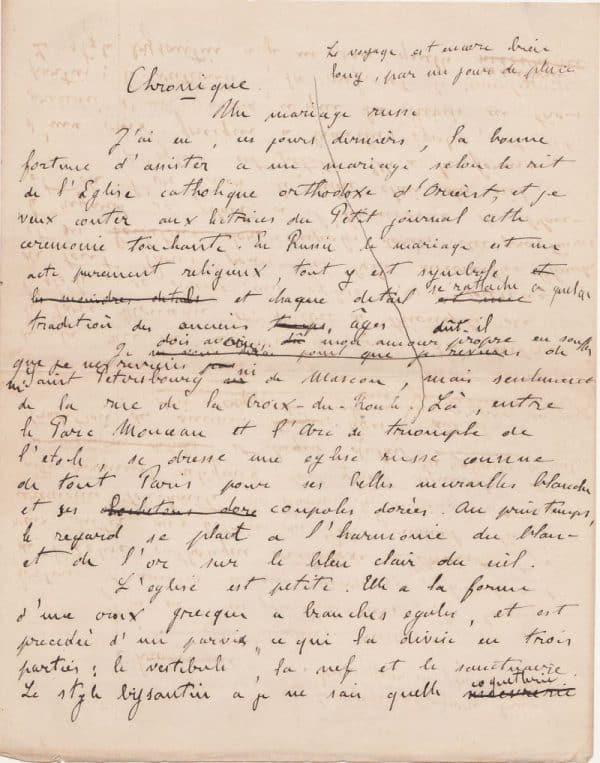 Le voyage est encore bien
long, par un jour de pluie
Chronique.
Un mariage russe
J'ai eu, ces jours derniers, la bonne
fortune d'assister a un mariage selon le rit
de l'Eglise catholique orthodoxe d'Orient, et je
veux conter aux lectrices du Petit journal cette
ceremonie touchante. En Russie le mariage est un
acte purement religieux, tout y est symbole et
les moindres details et chaque detail se rattache a quelque
tradition des anciens temps, âges dût-il
Je dois avouer, mon amour propre en souffrir
que je ne reviens ni de
Saint Petersbourg ni de Moscou, mais seulement
de la rue de la Croix-du-Roule. Là, entre
le Parc Monceau et l'Arc de triomphe de
l'étoile, se dresse une eglise russe connue
de tout Paris pour ses belles murailles blanches
et ses clochetons dorés coupoles dorées. Au printemps,
le regard se plait a l'harmonie du blanc
et de l'or sur le bleu clair du ciel.
L'eglise est petite. Elle a la forme
d'une croix grecque a branches egales, et est
precedée d'un parvis, ce qui la divise en trois
parties: le vestibule, la nef et le sanctuaire.
Le style bysantin a je ne sais quelle coquetterie